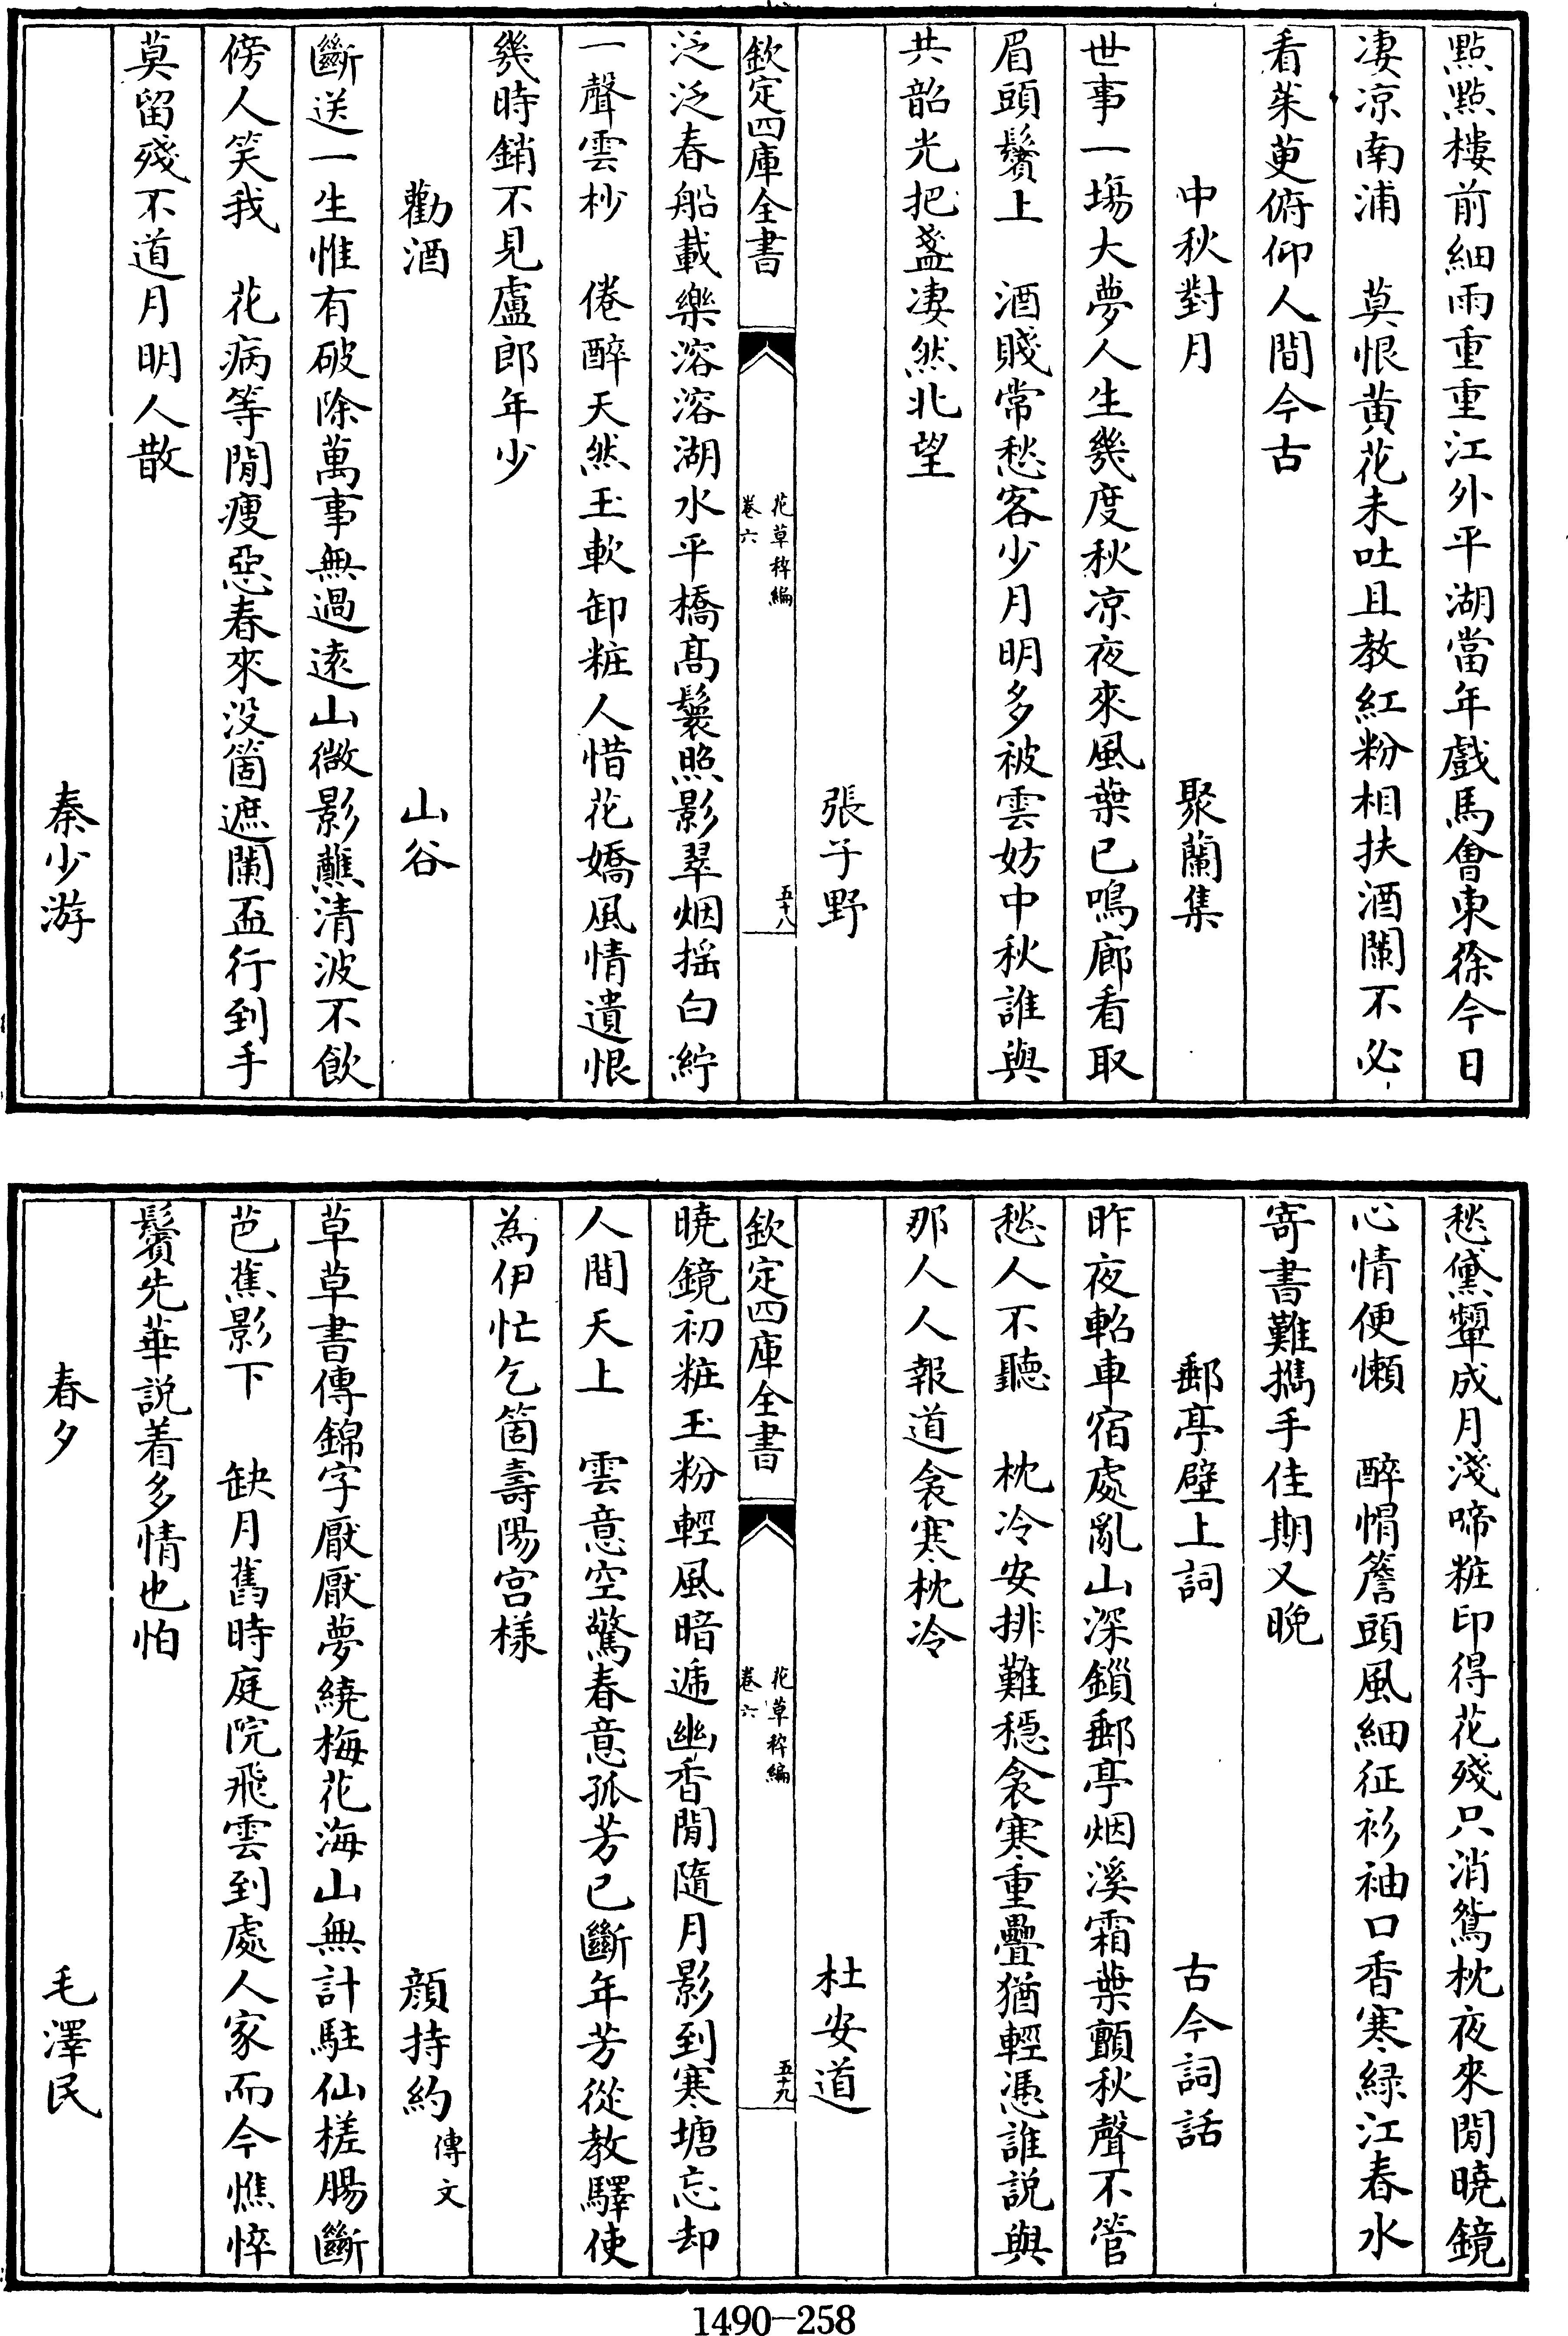 點點樓前細雨重重江外平湖當年戲馬會東徐今日
凄凉南浦　莫恨黃花未吐且教紅粉相扶酒闌不必
看茱萸俯仰人間今古
中秋對月　聚蘭集
世事一塲大夢人生幾度秋凉夜來風葉已鳴廊看取
眉頭鬢上　酒賤常愁客少月明多被雲妨中秋誰與
共韶光把盞凄然北望
張子野
欽定四庫全書　花草稡編　卷六　五十八
泛泛春船載樂溶溶湖水平橋髙鬟照影翠烟揺白紵
一聲雲杪　倦醉天然玉軟卸粧人惜花嬌風情遺恨
幾時銷不見盧郎年少
勸酒　山谷
斷送一生惟有破除萬事無過逺山㣲影蘸清波不飲
傍人笑我　花病等閒瘦惡春來没箇遮闌盃行到手
莫留殘不道月明人散
秦少游
愁黛顰成月淺啼粧印得花殘只消鴛枕夜來閒曉鏡
心情便懶　醉帽簷頭風細征衫袖口香寒緑江春水
寄書難擕手佳期又晚
郵亭壁上詞　古今詞話
昨夜軺車宿處亂山深鎻郵亭烟溪霜葉顫秋聲不管
愁人不聽　枕冷安排難穏衾寒重疊猶輕憑誰説與
那人人報道衾寒枕冷
杜安道
欽定四庫全書　花草稡編　卷六　五十九
曉鏡初粧玉粉輕風暗遞幽香閒隨月影到寒塘忘却
人間天上　雲意空驚春意孤芳已斷年芳從教驛使
為伊忙乞箇壽陽宫様
顔持約　傳文
草草書傳錦字厭厭夢繞梅花海山無計駐仙槎腸斷
芭蕉影下　缺月舊時庭院飛雲到處人家而今憔悴
鬢先華説着多情也怕
春夕　毛澤民
1490-258